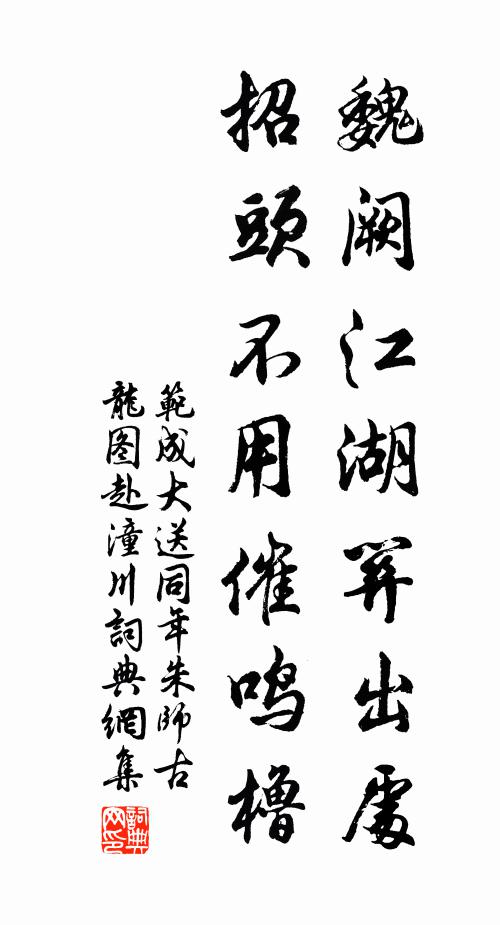 魏阙江湖出處
招頭不用催鸣櫓
範成大送同年朱師古
龍图赴潼川詞典網集
詞典
网印